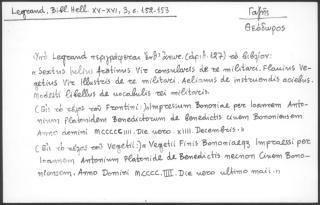 Legrand, Bibl. Hell. XV-XVI, 3, σ. 152-153
Γαζῆς
Θεόδωρος
Ὑπὸ Legrand περιγράφεται (ἀρ. 127) τὸ βιβλίον:
« Sextus Iulius frotinus Vir consularis de re militari. Flauius Ve-
getius Vir Illustris de re militari. Aelianus de instruendis aciebus.
Modesti libellus de uocabulis rei militaris.
(Εἰς τὸ τέλος τοῦ Frontini:) « Impressum Bononiae per Ioannem Anto-
nium Platonidem Benedictorum de Benedictis ciuem Bononiensem
Anno domini MCCCCCIIII. Die uero XIIII. Decembris. »
(Εἰς τὸ τέλος τοῦ Vegetii:) « Vegetii Finis Bononiae Impressi per
Ioannem Antonium Platonide de Benedictis necnon Ciuem Bono-
niensem. Anno Domini MCCCC, III. Die uero ultimo maii. »